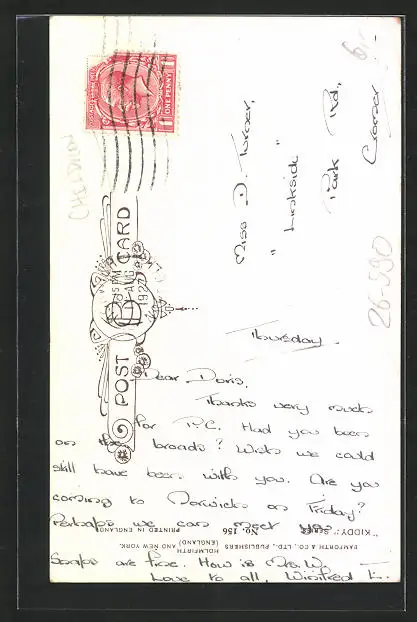 CHILDREN
ONE PENNY
POST CARD
1927
Miss D. Turner,
" Linkside "
Park Rd.,
Cromer
26-590
Thursday.
Dear Doris,
Thanks very much
for P.C. Had you been
on the broads? Wish we could
still have been with you. Are you
coming to Norwich on Friday?
Perhaps we can meet you.
Snaps are fine. How is Mrs. W.
Love to all, Winifred E.
"KIDDY" Series No. 156 PRINTED IN ENGLAND
BAMFORTH & CO., LTD., PUBLISHERS
HOLMFIRTH (ENGLAND) AND NEW YORK.